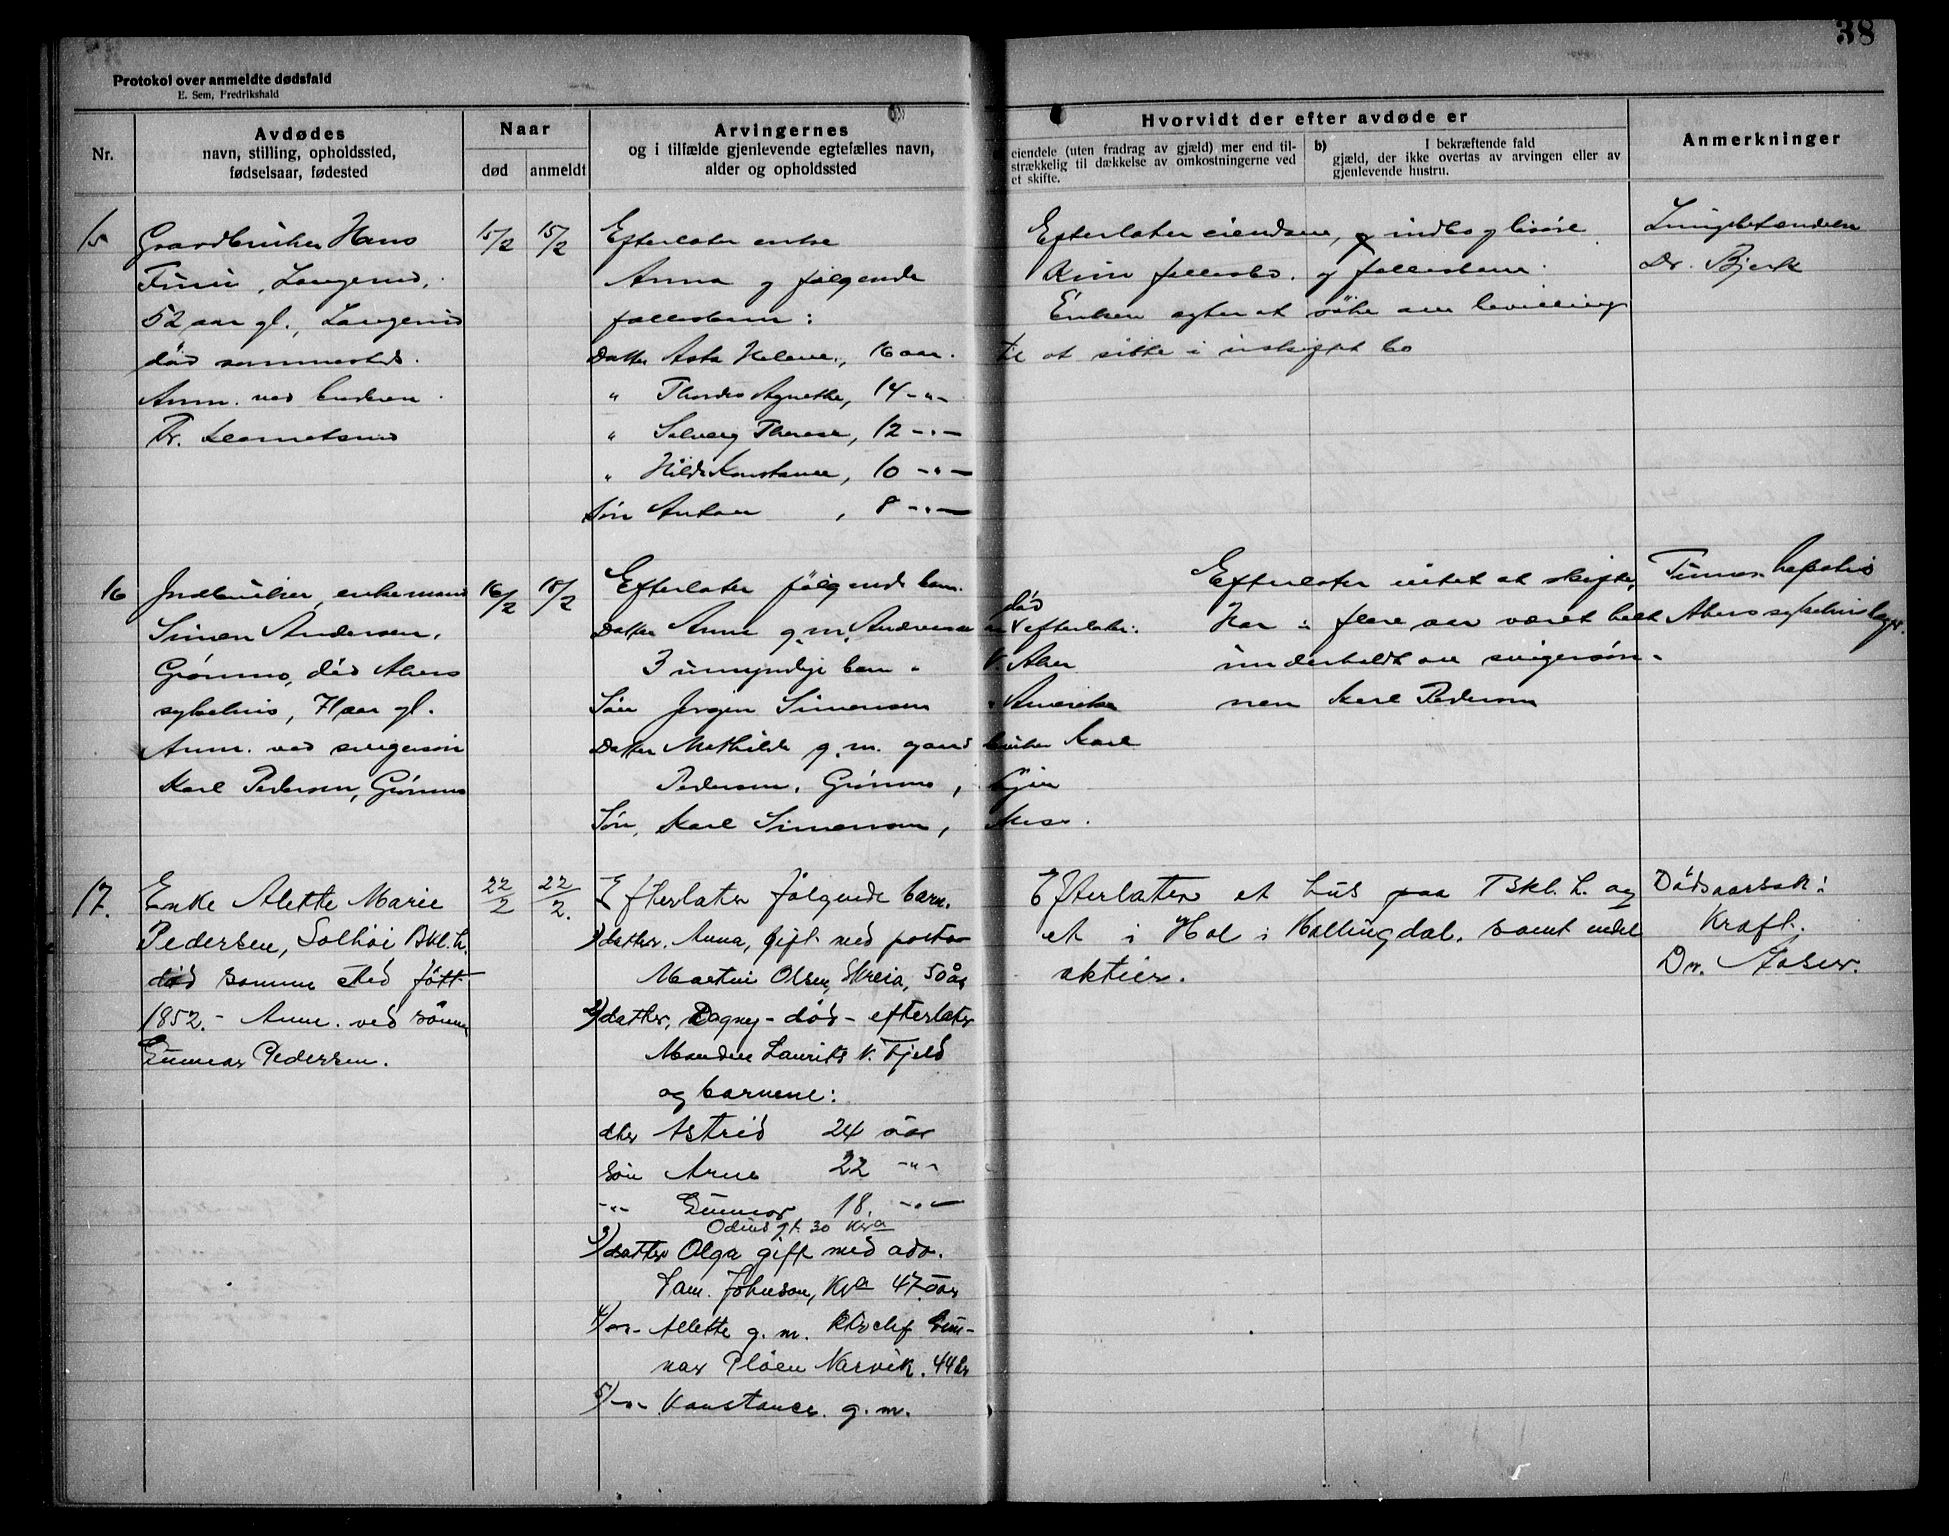 38
Protokol over anmeldte dødsfald
E. Sem, Fredrikshald
Nr.
Avdødes
navn, stilling, opholdssted,
fødselsaar, fødested
Naar
død
anmeldt
Arvingernes
og i tilfælde gjenlevende egtefælles navn,
alder og opholdssted
Hvorvidt der efter avdøde er
eiendele (uten fradrag av gjæld) mer end til-
strækkelig til dækkelse av omkostningerne ved
et skifte.
b) I bekræftende fald
gjæld, der ikke overtas av arvingen eller av
gjenlevende hustru.
Anmerkninger
15
Gaardbruker Hans
Furu, Langerud,
52 aar gl., Langerud
død sammesteds.
Anm. ved
15/2
15/2
Efterlater enke
Anna og følgende
fællesbarn:
Datter Asta Helene, 16 aar.
" Thordis Agnethe, 14 -"-
" Solveig Therese, 12 -"-
" Hilda Konstanse, 10 -"-
Søn Anton , 8 -"-
Efterlater eiendom, og indbo
Kun fællesbo og fællesbarn.
Enken agter at søke om bevilling
til at sitte i uskiftet bo
Lungebetændelse
Dr. Bjerk
16
Jordbruker, enkemand
Simon Andersen,
Grønmo, død Akers
sykehus, 71 aar gl.
Anm. ved svigersøn
Karl Pedersen, Grønmo
16/2
18/2
Efterlater følgende barn.
Datter Anne g.m. Andreas
død
efterlater:
3 umyndige barn - V. Aker
Søn Jørgen Simensen Amerika
Datter Mathilde g.m. gaardbruker Karl
Pedersen, Grønmo,
Søn, Karl Simensen,
Efterlater intet at skifte,
Har i flere aar været helt
underholdt av svigersøn-
nen Karl Pedersen
Tumor hepatis
Akers sykehus
17.
Enke Alette Marie
Pedersen, Solhøi Bkl. L.
død samme sted født
1852.- Anm. ved sønnen
Gunnar Pedersen.
22/2
22/2.
Efterlater følgende barn.
1) datter. Anna, gift med
Martin Olsen, Skreia, 50 år
2) datter, Dagny - død - efterlater
Manden Laurits V. Fjeld
og barnene:
dtr Astrid 24 år
søn Arne 22 -"-
-"- Gunnar 18. -"-
3) datter Olga gift med adv.
Sam. Johnson, Kra 47 år
4) -"- Allette g. m. Gun-
nar Pløen Narvik. 44 år
5) -"- Konstance. g. m.
Efterlater et hus paa Bkl. L. og
et i Hol i Hallingdal. samt endel
aktier.
Dødsaarsak:
Kræft.
Dr. Aaser.